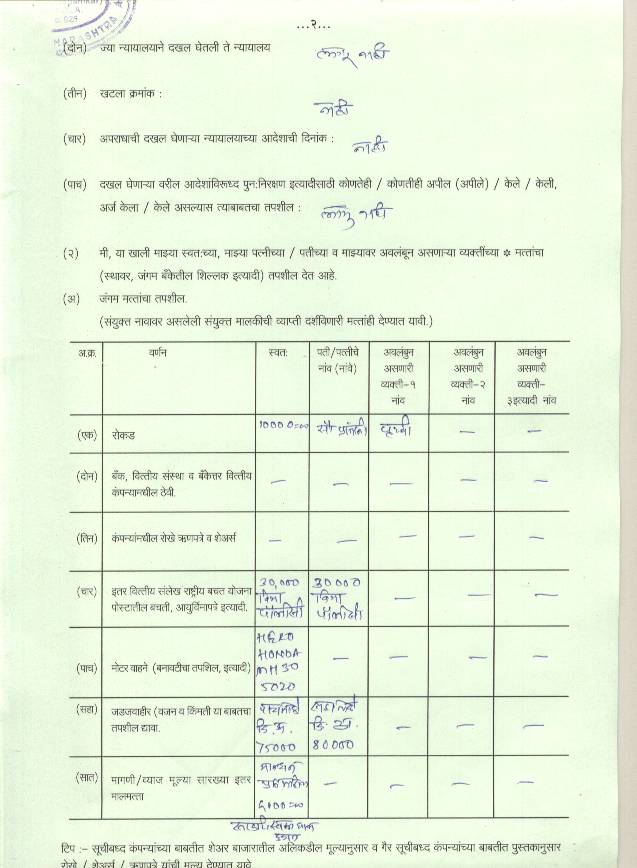 MAHARASHTRA
...२...
(दोन) ज्या न्यायालयाने दखल घेतली ते न्यायालय लागू नाही
(तीन) खटला क्रमांक : नाही
(चार) अपराधाची दखल घेणाऱ्या न्यायालयाच्या आदेशाची दिनांक : नाही
(पाच) दखल घेणाऱ्या वरील आदेशांविरूध्द पुन:निरक्षण इत्यादीसाठी कोणतेही / कोणतीही अपील (अपीले) / केले / केली,
अर्ज केला / केले असल्यास त्याबाबतचा तपशील : लागू नाही
(२) मी, या खाली माझ्या स्वत:च्या, माझ्या पत्नीच्या / पतीच्या व माझ्यावर अवलंबून असणाऱ्या व्यक्तींच्या * मत्तांचा
(स्थावर, जंगम बँकेतील शिल्लक इत्यादी) तपशील देत आहे.
(अ) जंगम मत्तांचा तपशील.
(संयुक्त नावावर असलेली संयुक्त मालकीची व्याप्ती दर्शविणारी मत्तांही देण्यात यावी.)
अ.क्र. वर्णन स्वत: पती/पत्नीचे अवलंबुन अवलंबुन अवलंबुन
नांव (नांवे) असणारी असणारी असणारी
व्यक्ती-१ व्यक्ती-२ व्यक्ती-
नांव नांव ३इत्यादी नांव
(एक) रोकड 10000=00 सौ — —
(दोन) बँक, वित्तीय संस्था व बँकेत्तर वित्तीय — — — — —
कंपन्यामधील ठेवी.
(तिन) कंपन्यांमधील रोखे ऋणपत्रे व शेअर्स — — — — —
(चार) इतर वित्तीय संलेख राष्ट्रीय बचत योजना 30,000 30000 — — —
पोस्टातील बचती, आयुर्विमापत्रे इत्यादी. विमा विमा
पॉलीसी पॉलीसी
(पाच) मोटर वाहने (बनावटीचा तपशिल, इत्यादी) HERO — — — —
HONDA
MH30
5020
(सहा) जडजवाहीर (वजन व किंमती या बाबतचा — — —
तपशील द्यावा. कि. कि.
75000 80000
(सात) मागणी/व्याज मूल्या सारख्या इतर — — — —
मालमत्ता
टिप :- सूचीबध्द कंपन्यांच्या बाबतीत शेअर बाजारातील अलिकडील मूल्यानुसार व गैर सूचीबध्द कंपन्यांच्या बाबतीत पुस्तकानुसार
रोखे / शेअर्स / ऋणपत्रे यांची मूल्य देण्यात यावे